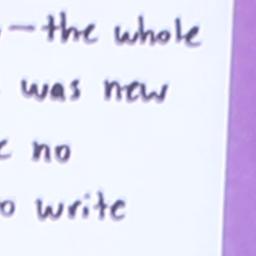 — the whole
was new
no
write